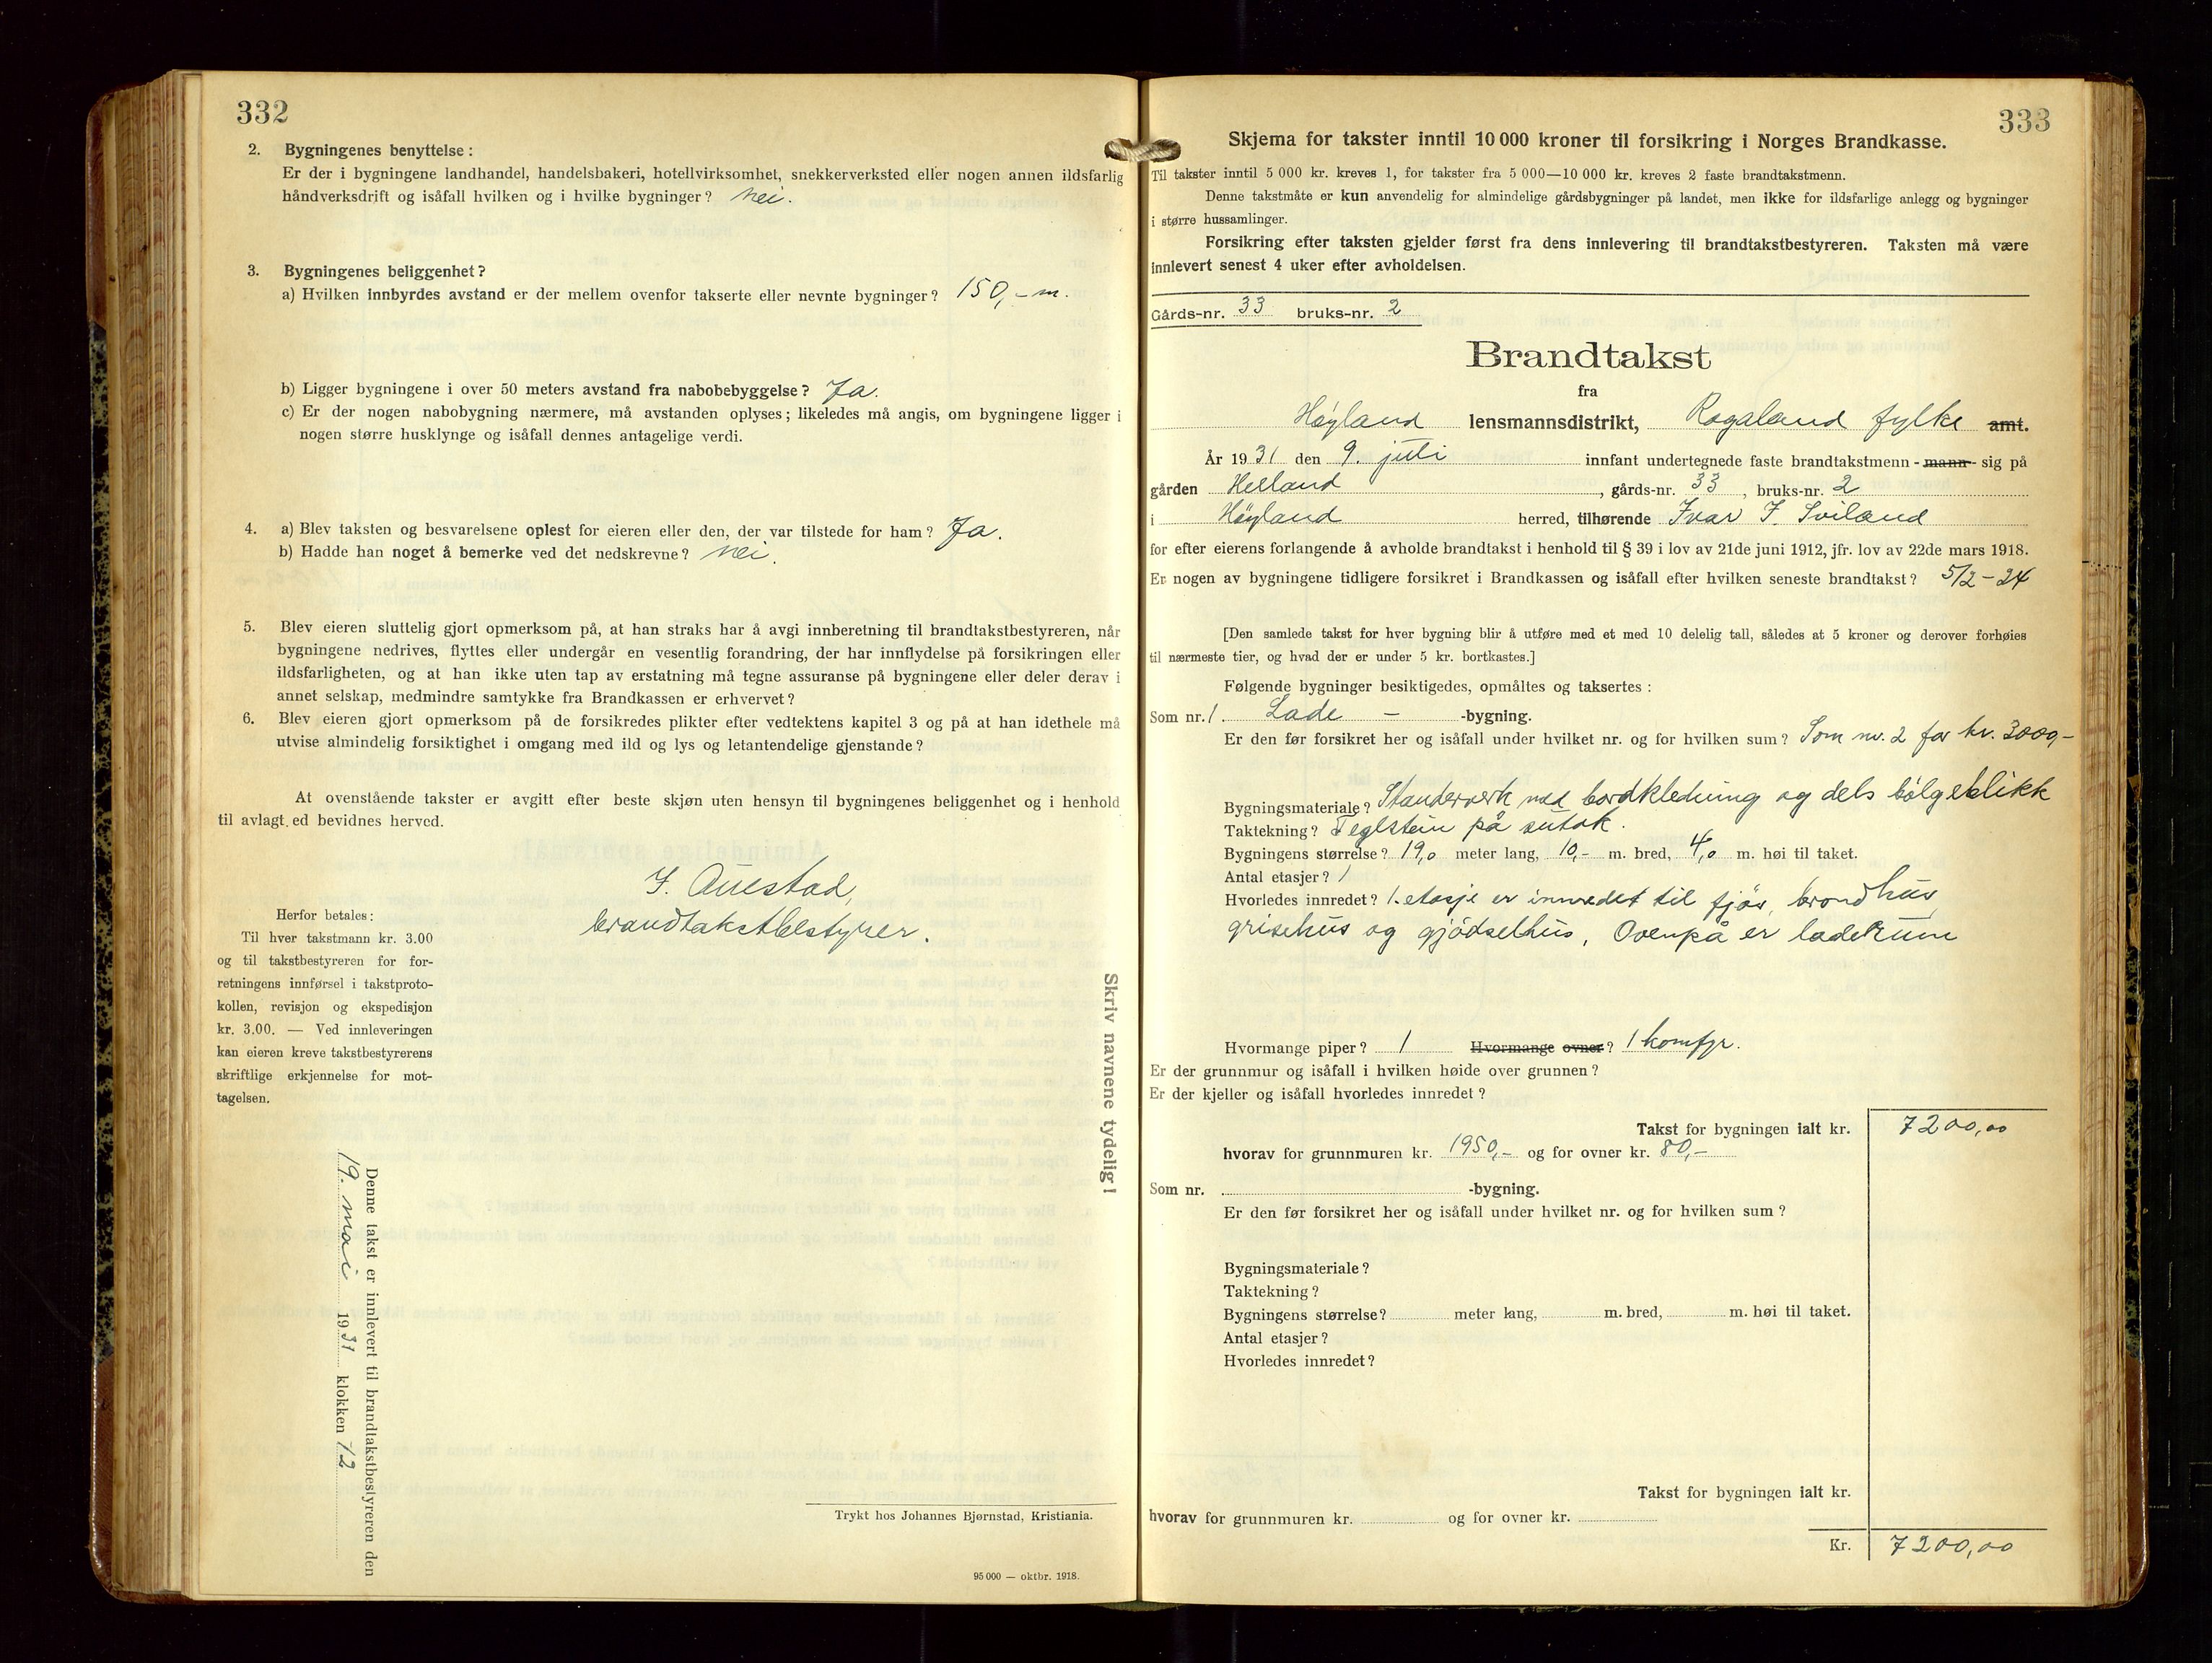 332
2. Bygningenes benyttelse:
Er der i bygningene landhandel, handelsbakeri, hotellvirksomhet, snekkerverksted eller nogen annen ildsfarlig
håndverksdrift og isåfall hvilken og i hvilke bygninger? Nei.
3. Bygningenes beliggenhet?
a) Hvilken innbyrdes avstand er der mellem ovenfor takserte eller nevnte bygninger? 150,- m.
b) Ligger bygningene i over 50 meters avstand fra nabobebyggelse? Ja.
c) Er der nogen nabobygning nærmere, må avstanden oplyses; likeledes må angis, om bygningene ligger i
nogen større husklynge og isåfall dennes antagelige verdi.
4. a) Blev taksten og besvarelsene oplest for eieren eller den, der var tilstede for ham? Ja.
b) Hadde han noget å bemerke ved det nedskrevne? Nei.
5. Blev eieren sluttelig gjort opmerksom på, at han straks har å avgi innberetning til brandtakstbestyreren, når
bygningene nedrives, flyttes eller undergår en vesentlig forandring, der har innflydelse på forsikringen eller
ildsfarligheten, og at han ikke uten tap av erstatning må tegne assuranse på bygningene eller deler derav i
annet selskap, medmindre samtykke fra Brandkassen er erhvervet?
6. Blev eieren gjort opmerksom på de forsikredes plikter efter vedtektens kapitel 3 og på at han idethele må
utvise almindelig forsiktighet i omgang med ild og lys og letantendelige gjenstande?
At ovenstående takster er avgitt efter beste skjøn uten hensyn til bygningenes beliggenhet og i henhold
til avlagt ed bevidnes herved.
J. Auestad,
brandtakstbestyrer.
Herfor betales:
Til hver takstmann kr. 3.00
og til takstbestyreren for for-
retningens innførsel i takstproto-
kollen, revisjon og ekspedisjon
kr. 3.00. — Ved innleveringen
kan eieren kreve takstbestyrerens
skriftlige erkjennelse for mot-
tagelsen.
Skriv navnene tydelig!
Denne takst er innlevert til brandtakstbestyreren den
19. mai 1931 klokken 12
Trykt hos Johannes Bjørnstad, Kristiania.
95 000 — oktbr. 1918.
333
Skjema for takster inntil 10 000 kroner til forsikring i Norges Brandkasse.
Til takster inntil 5 000 kr. kreves 1, for takster fra 5 000—10 000 kr. kreves 2 faste brandtakstmenn.
Denne takstmåte er kun anvendelig for almindelige gårdsbygninger på landet, men ikke for ildsfarlige anlegg og bygninger
i større hussamlinger.
Forsikring efter taksten gjelder først fra dens innlevering til brandtakstbestyreren. Taksten må være
innlevert senest 4 uker efter avholdelsen.
Gårds-nr. 33 bruks-nr. 2
Brandtakst
fra
Høyland lensmannsdistrikt, Rogaland fylke amt.
År 1931 den 9. juli innfant undertegnede faste brandtakstmenn - mann - sig på
gården Helland, gårds-nr. 33, bruks-nr. 2
i Høyland herred, tilhørende Ivar J. Sviland
for efter eierens forlangende å avholde brandtakst i henhold til § 39 i lov av 21de juni 1912, jfr. lov av 22de mars 1918.
Er nogen av bygningene tidligere forsikret i Brandkassen og isåfall efter hvilken seneste brandtakst? 5/2 - 24
[Den samlede takst for hver bygning blir å utføre med et med 10 delelig tall, således at 5 kroner og derover forhøies
til nærmeste tier, og hvad der er under 5 kr. bortkastes.]
Følgende bygninger besiktigedes, opmåltes og taksertes:
Som nr. 1 Lade - -bygning.
Er den før forsikret her og isåfall under hvilket nr. og for hvilken sum? Som nr. 2 for kr. 3000,-
Bygningsmateriale? Standerverk med bordkledning og dels bølgeblikk
Taktekning? Teglstein på sutak.
Bygningens størrelse? 19,0 meter lang, 10,- m. bred, 4,0 m. høi til taket.
Antal etasjer? 1
Hvorledes innredet? 1. etasje er innredet til fjøs, brondhus
grisehus og gjødselhus, Ovenpå er laderum
Hvormange piper? 1 Hvormange ovner? 1 komfyr.
Er der grunnmur og isåfall i hvilken høide over grunnen?
Er der kjeller og isåfall hvorledes innredet?
Takst for bygningen ialt kr. 7200,00
hvorav for grunnmuren kr. 1950,- og for ovner kr. 80,-
Som nr. -bygning.
Er den før forsikret her og isåfall under hvilket nr. og for hvilken sum?
Bygningsmateriale?
Taktekning?
Bygningens størrelse? meter lang, m. bred, m. høi til taket.
Antal etasjer?
Hvorledes innredet?
Takst for bygningen ialt kr.
hvorav for grunnmuren kr. og for ovner kr.
Kr. 7200,00